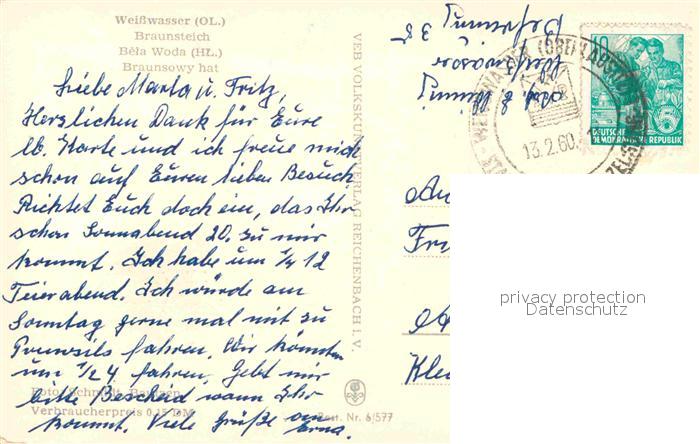 Weißwasser (OL.)
Braunsteich
Běła Woda (HŁ.)
Braunsowy hat
Liebe Marta u. Fritz,
Herzlichen Dank für Eure
lb. Karte und ich freue mich
schon auf Euren lieben Besuch.
Richtet Euch doch ein, das Ihr
schon Sonnabend 20. zu mir
kommt. Ich habe um ¼ 12
Feierabend. Ich würde am
Sonntag gerne mal mit zu
fahren. Wir könnten
um ½ 4 fahren. Gebt mir
bitte Bescheid wann Ihr
kommt. Viele Grüße
Erna.
Foto: Schmidt, Bautzen
Verbraucherpreis 0,15 DM
Best. Nr. 6/577
VEB VOLKSKUNSTVERLAG REICHENBACH I. V.
10
5
DEUTSCHE
DEMOKRATISCHE REPUBLIK
13.2.60.
An
Kle
privacy protection
Datenschutz